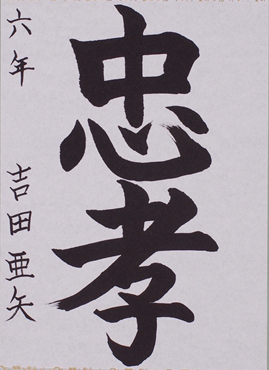 忠孝
六年 吉田亜矢